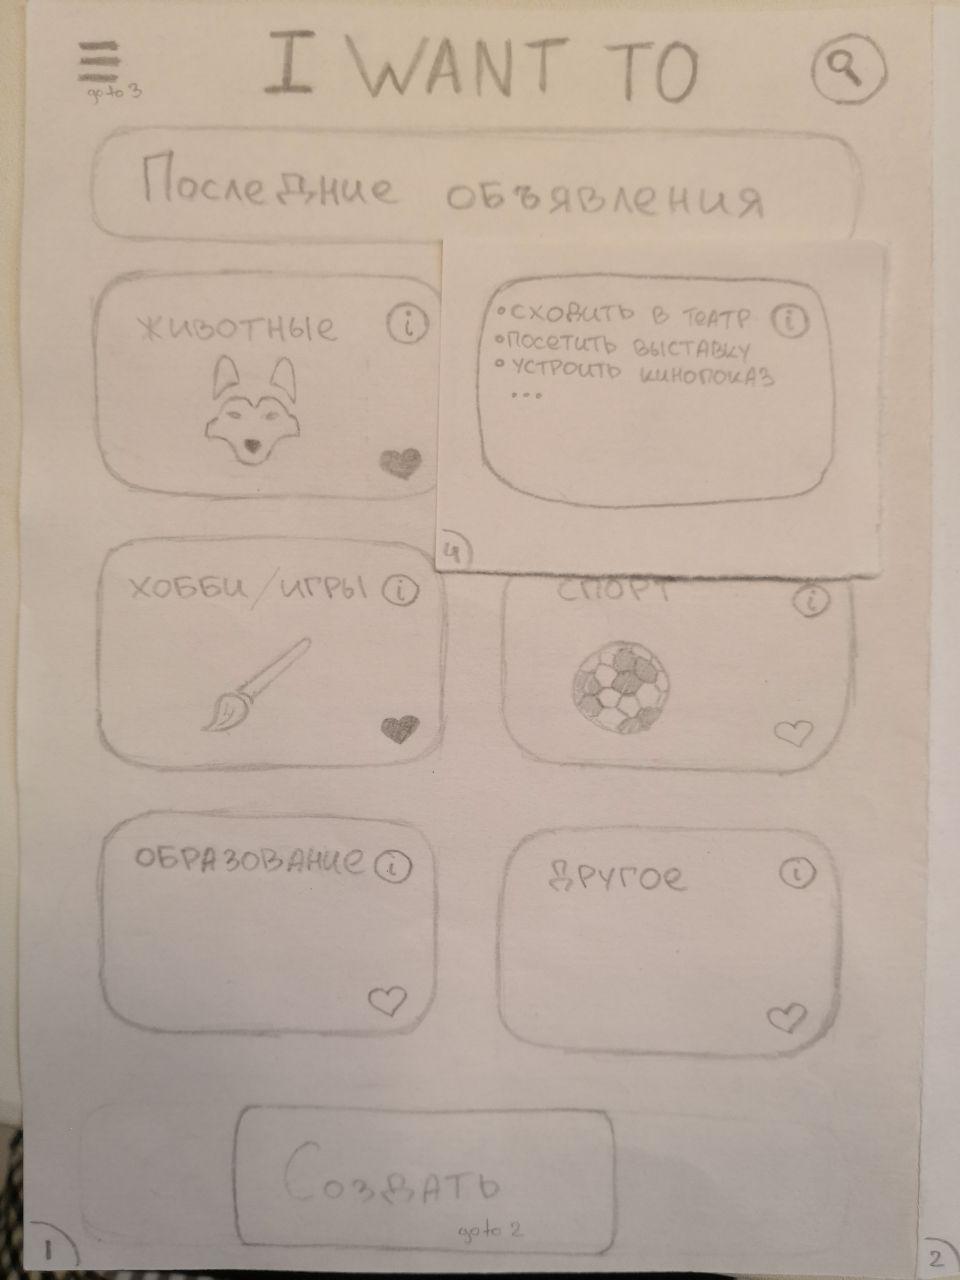 I WANT TO
go to 3
Последние объявления
ЖИВОТНЫЕ i
• СХОДИТЬ В ТЕАТР i
• ПОСЕТИТЬ ВЫСТАВКУ
• УСТРОИТЬ КИНОПОКАЗ
...
4
ХОББИ/ИГРЫ i
СПОРТ i
ОБРАЗОВАНИЕ i
ДРУГОЕ i
Создать
go to 2
1
2